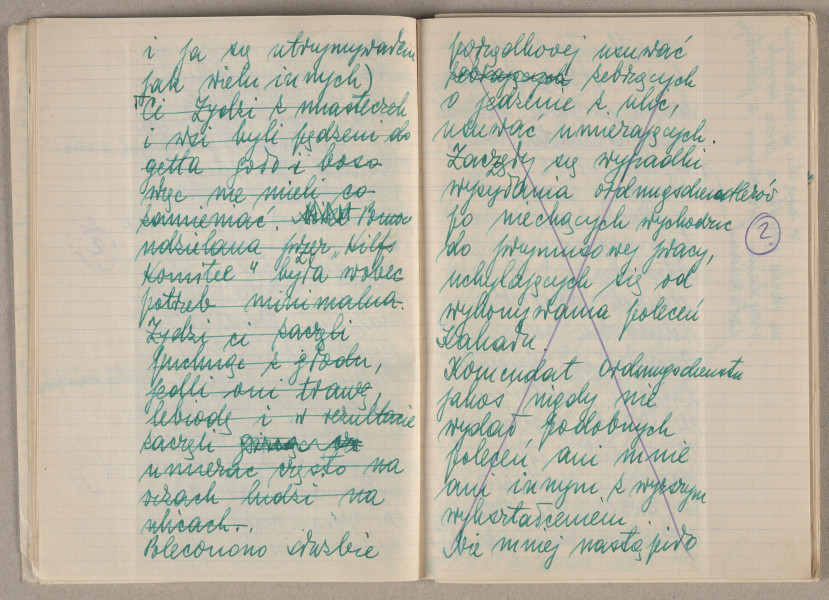 i ja się utrzymywałem
jak wielu innych)
Ci Żydzi z miasteczek
i wsi byli pędzeni do
getta goło i boso
więc nie mieli co
zamieniać. Pomoc
udzielana przez „Hilfs
Komitee" była wobec
potrzeb minimalna.
Żydzi ci zaczęli
puchnąć z głodu,
jedli oni trawę,
lebiodę i w rezultacie
zaczęli
umierać często na
oczach ludzi na
ulicach.
Poleconono służbie
porządkowej usuwać
żebrzących
o jedzenie z ulic,
usuwać umierających.
Zaczęły się wypadki
wysyłania ordnungsdienstlerów
po niechcących wychodzić
do przymusowej pracy,
uchylających się od
wykonywania poleceń
Kahału.
Komendat ordnungsdienstu
jakoś nigdy nie
wydał podobnych
poleceń ani mnie
ani innym z wyższym
wykształceniem.
Nie mniej nastąpiło
?